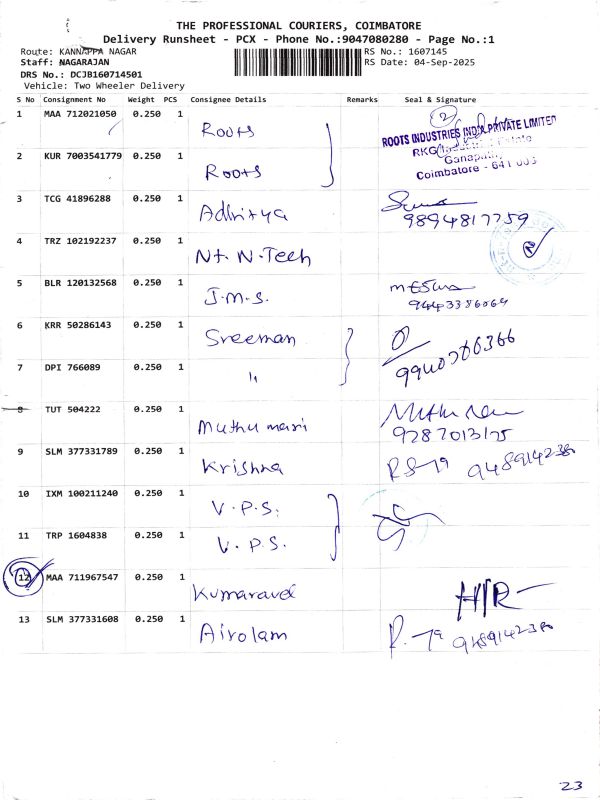 THE PROFESSIONAL COURIERS, COIMBATORE
Delivery Runsheet - PCX - Phone No.:9047080280 - Page No.:1
Route: KANNAPPA NAGAR RS No.: 1607145
Staff: NAGARAJAN RS Date: 04-Sep-2025
DRS No.: DCJB160714501
Vehicle: Two Wheeler Delivery
S No Consignment No Weight PCS Consignee Details Remarks Seal & Signature
1 MAA 712021050 0.250 1 Roots 2
ROOTS INDUSTRIES INDIA PRIVATE LIMITED
RKG Estate
Ganapathy
Coimbatore - 641 006
2 KUR 7003541779 0.250 1 Roots
3 TCG 41896288 0.250 1 Adhitya
9894817759
4 TRZ 102192237 0.250 1 N+ N-Tech
5 BLR 120132568 0.250 1 J.M.S.
6 KRR 50286143 0.250 1 Sreeman
7 DPI 766089 0.250 1 "
8 TUT 504222 0.250 1 Muthu mari
9287013175
9 SLM 377331789 0.250 1 Krishna
10 IXM 100211240 0.250 1 V.P.S.
11 TRP 1604838 0.250 1 V.P.S.
12 MAA 711967547 0.250 1 Kumaravel
13 SLM 377331608 0.250 1 Airolam
23